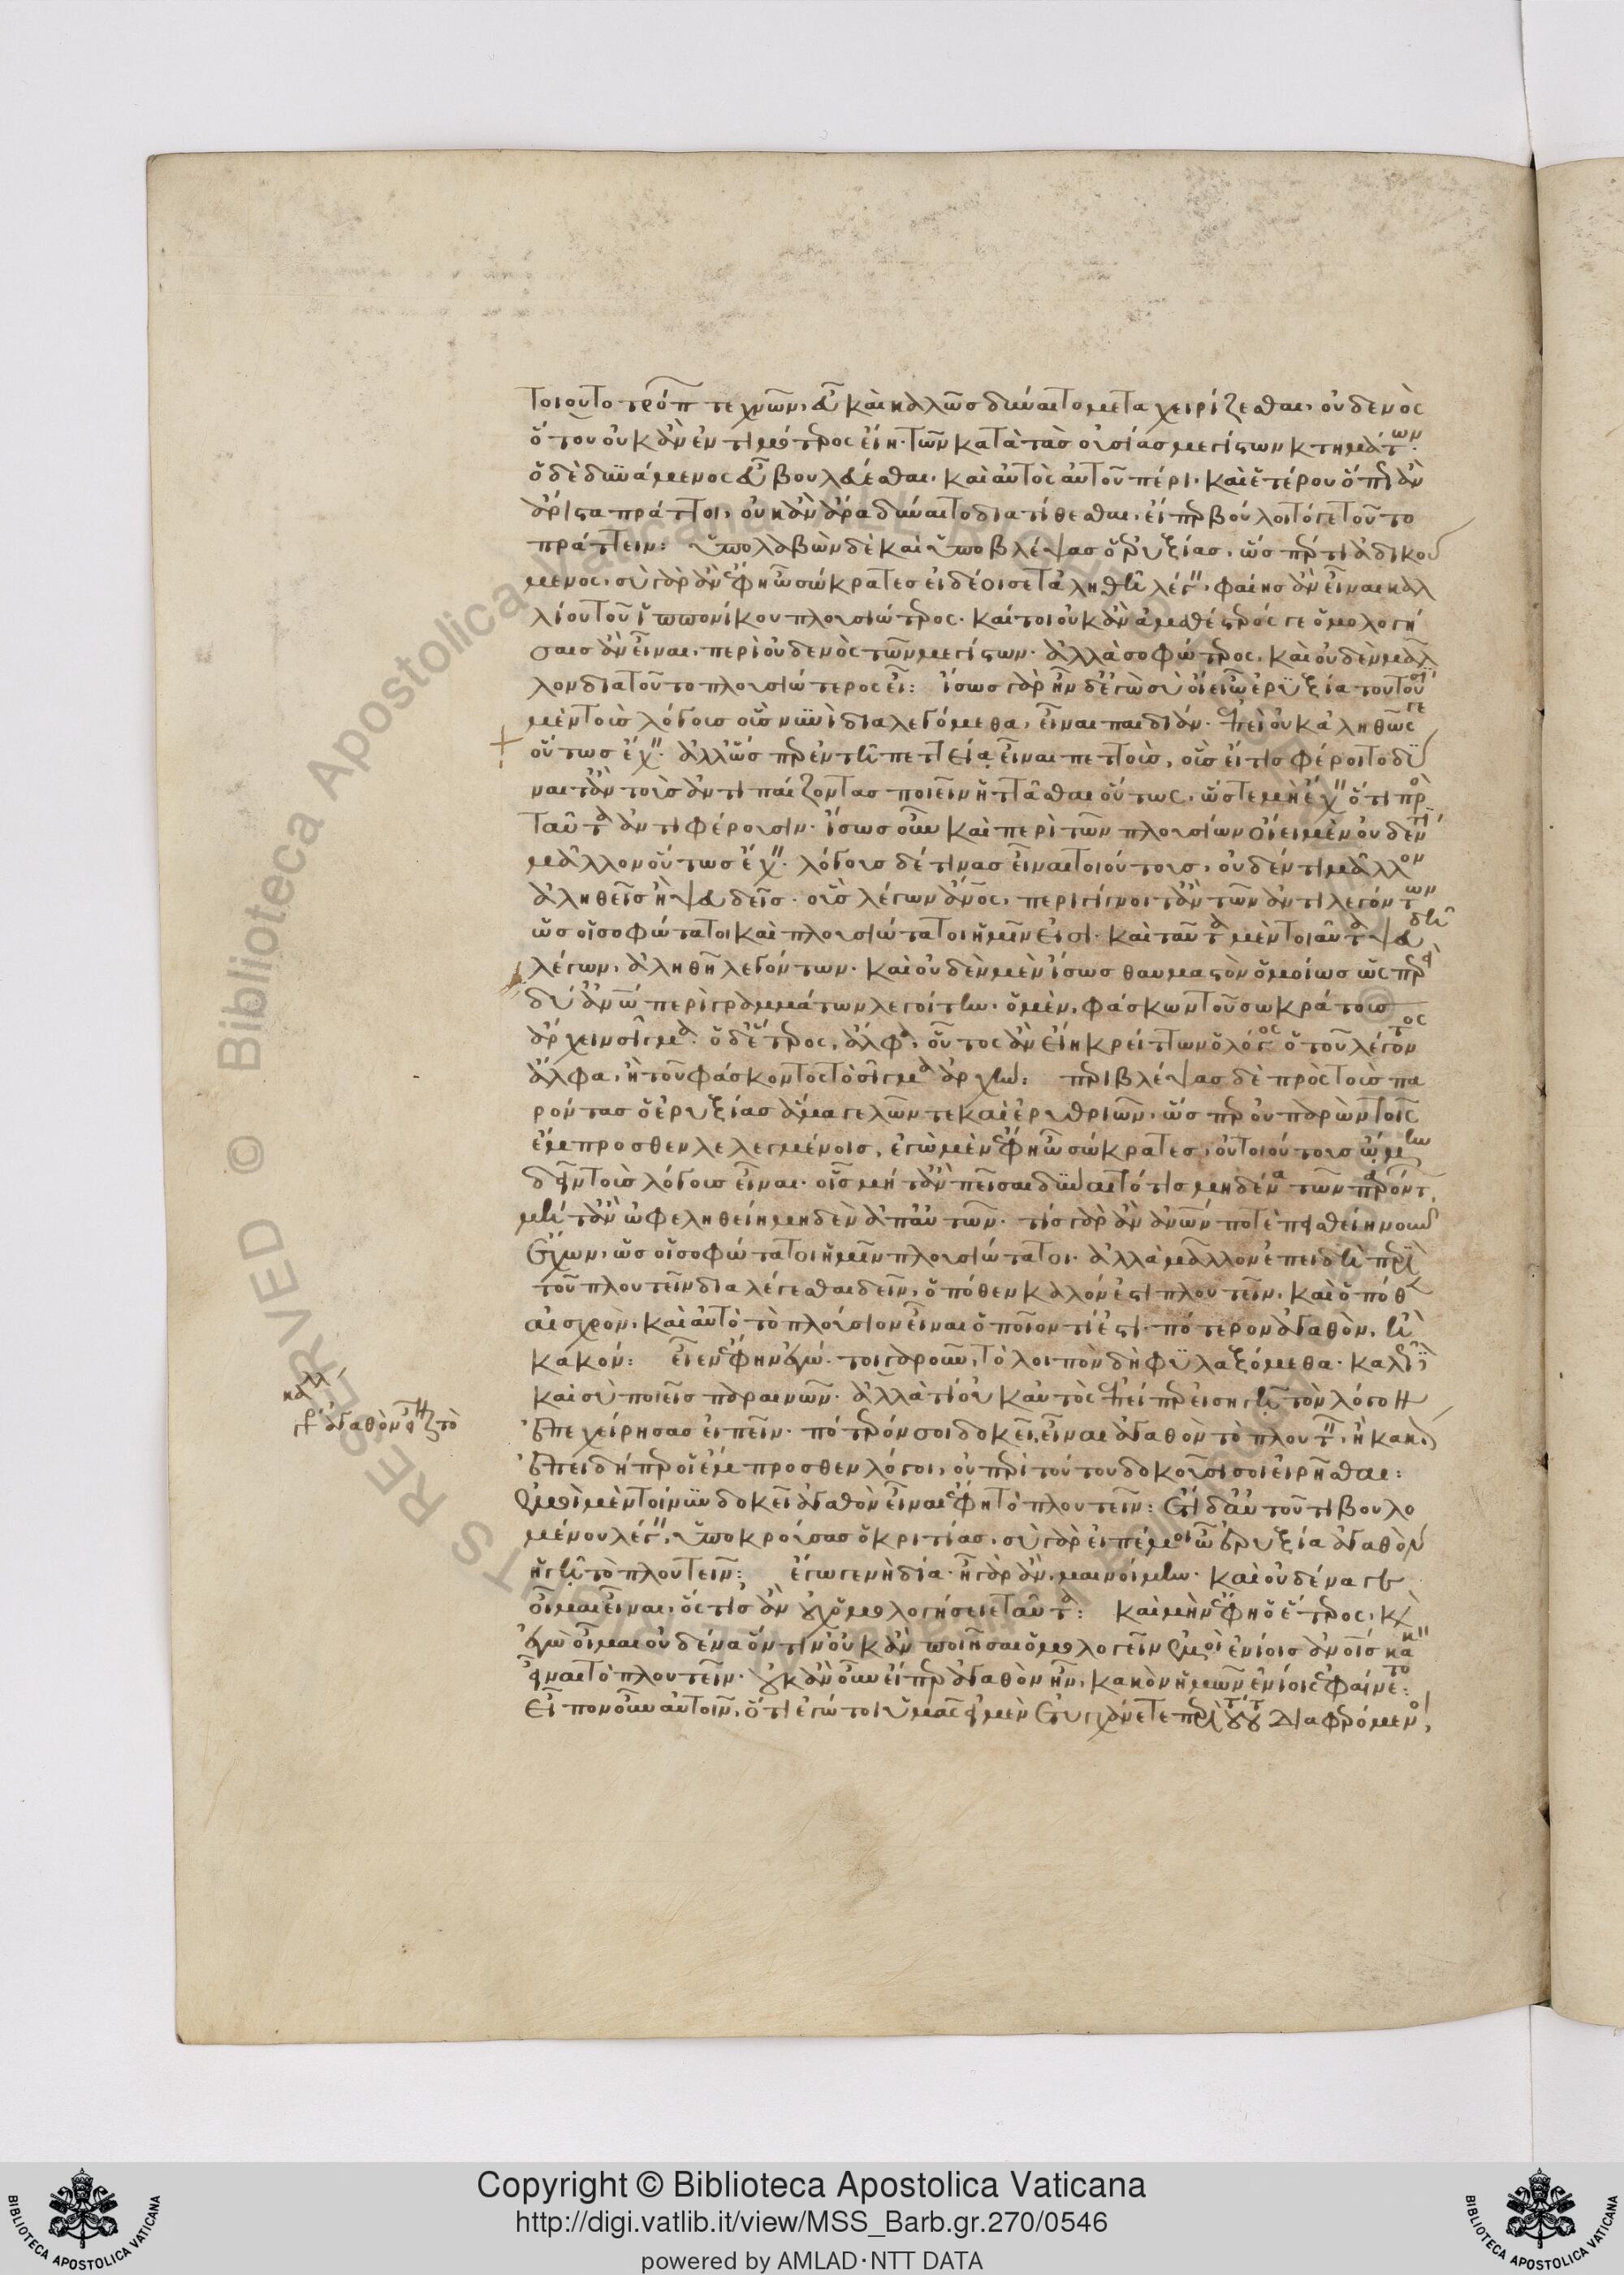 τοιοῦτο τρόπ τεχνῶν, εὖ καὶ καλῶς δύναιτο μεταχειρίζεσθαι, οὐδενὸς
ὅτου οὐκ ἂν ἐντιμότερος εἴη. τῶν κατὰ τὰς οὐσίας μεγίστων κτημάτων.
ὁ δὲ δυνάμενος εὖ βουλεύεσθαι, καὶ αὐτὸς αὑτοῦ πέρι. καὶ ἑτέρου ὅπη ἂν
ἄριστα πράττοι, οὐκ ἂν ἄρα δύναιτο διατίθεσθαι, εἴπερ βούλοιτό γε τοῦτο
πράττειν: ὑπολαβὼν δὲ καὶ ὑποβλέψας ὁ ἐρυξίας, ὥσπερ τι ἀδικού
μενος, σὺ γὰρ ἂν ἔφη ὦ σώκρατες εἰ δέοι σε τἀληθῆ λέγειν, φαίης ἂν εἶναι καλ
λίου τοῦ ἱππονίκου πλουσιώτερος. καίτοι οὐκ ἂν ἀμαθέστερός γε ὁμολογή
σαις ἂν εἶναι, περὶ οὐδενὸς τῶν μεγίστων. ἀλλὰ σοφώτερος, καὶ οὐδὲν μᾶλ
λον διὰ τοῦτο πλουσιώτερος εἶ: ἴσως γὰρ ἦν δ' ἐγὼ σὺ οἴει ὦ ἐρυξία τουτουσὶ
μὲν τοῖς λόγοις οἷς νυνὶ διαλεγόμεθα, εἶναι παιδιάν. ἐπεὶ οὐκ ἀληθῶς γε
οὕτως ἔχειν. ἀλλ' ὥσπερ ἐν τῇ πεττείᾳ εἶναι πεττοὶς, οἷς εἴ τις φέροιτο δύ
ναιτ' ἂν τοὺς ἀντιπαίζοντας ποιεῖν ἡττᾶσθαι οὕτως, ὥστε μὴ ἔχειν ὅ τι πρὸ
ταῦτα ἀντιφέρουσιν. ἴσως οὖν καὶ περὶ τῶν πλουσίων οἴει μὲν οὐδέν τι
μᾶλλον οὕτως ἔχειν. λόγους δέ τινας εἶναι τοιούτους, οὐδέν τι μᾶλλον
ἀληθεῖς ἢ ψευδεῖς. οὓς λέγων ἄνος, περιγίγνοιτ' ἂν τῶν ἀντιλεγόντων
ὡς οἱ σοφώτατοι καὶ πλουσιώτατοι ἡμῖν εἰσι. καὶ ταῦτα μέντοι αὐτὰ ψευδῆ
λέγων, ἀληθῆ λεγόντων. καὶ οὐδὲν μὲν ἴσως θαυμαστὸν ὁμοίως ὥσπερ
δύ' ἄνω περὶ γραμμάτων λεγοίτην. ὁ μὲν, φάσκων τοῦ σωκράτους
ἄρχειν σῖγμα. ὁ δ' ἕτερος, ἄλφα, οὗτος ἂν εἴη κρείττων ὁ λόγος ὁ τοῦ λέγοντος
ἄλφα, ἢ τοῦ φάσκοντος τὸ σῖγμα ἄρχειν: περιβλέψας δὲ πρὸς τοὺς πα
ρόντας ὁ ἐρυξίας ἅμα γελῶν τε καὶ ἐρυθριῶν, ὥσπερ οὐ παρὼν τοῖς
ἔμπροσθεν λελεγμένοις, ἐγὼ μὲν ἔφη ὦ σώκρατες, οὐ τοιούτους ᾤμην
δεῖν τοὺς λόγους εἶναι. οἷς μήτ' ἂν πεῖσαι δύναιτό τις μηδένα τῶν παρόντ,
μήτ' ἂν ὠφεληθείη μηδὲν ἀπ' αὐτῶν. τίς γὰρ ἂν ἀνων ποτὲ πεισθείη νοῦν
ἔχων, ὡς οἱ σοφώτατοι ἡμῖν πλουσιώτατοι. ἀλλὰ μᾶλλον ἐπειδὴ περὶ
τοῦ πλουτεῖν διαλέγεσθαι δεῖν, ὁπόθεν καλόν ἐστι πλουτεῖν, καὶ ὁπόθεν
αἰσχρόν, καὶ αὐτὸ τὸ πλούσιον εἶναι ὁποῖόν τί ἐστι. πότερον ἀγαθὸν, ἢ
κακόν: εἶεν ἔφην ἐγώ. τοιγαροῦν, τὸ λοιπὸν δὴ φυλαξόμεθα. καλῶς
καὶ σὺ ποιεῖς παραινῶν. ἀλλὰ τί οὐκ αὐτὸς ἐπείπερ εἰσηγῇ τὸν λόγον
ἐπεχείρησας εἰπεῖν. πότερόν σοι δοκεῖ εἶναι ἀγαθὸν τὸ πλουτεῖν, ἢ κακόν
ἐπειδήπερ οἱ ἔμπροσθεν λόγοι, οὐ περὶ τούτου δοκοῦσί σοι εἰρῆσθαι:
ἐμοὶ μὲν τοίνυν δοκεῖ ἀγαθὸν εἶναι ἔφη τὸ πλουτεῖν: ἔτι δ' αὐτοῦ τι βουλο
μένου λέγειν, ὑποκρούσας ὁ κριτίας, σὺ γὰρ εἰπέ μοι ὦ ἐρυξία ἀγαθὸν
ἡγῇ τὸ πλουτεῖν: ἔγωγε νὴ δία. ἦ γὰρ ἂν, μαινοίμην. καὶ οὐδένα γε
οἶμαι εἶναι, ὅστις ἂν οὐχ ὁμολογήσειε ταῦτα: καὶ μὴν ἔφη ὁ ἕτερος, κ
ἐγὼ οἶμαι οὐδένα ὅντιν' οὐκ ἂν ποιῆσαι ὁμολογεῖν ἐμοὶ ἐνίοις ἀνοις κακὸν
εἶναι τὸ πλουτεῖν. οὐκ ἂν οὖν εἴπερ ἀγαθὸν ἦν, κακὸν ἡμῶν ἐνίοις ἐφαίνετο:
εἶπον οὖν αὐτοῖν, ὅτι ἐγώ τοι ὑμᾶς εἰ μὲν ἐτυγχάνετε περὶ τούτου διαφερόμενοι,